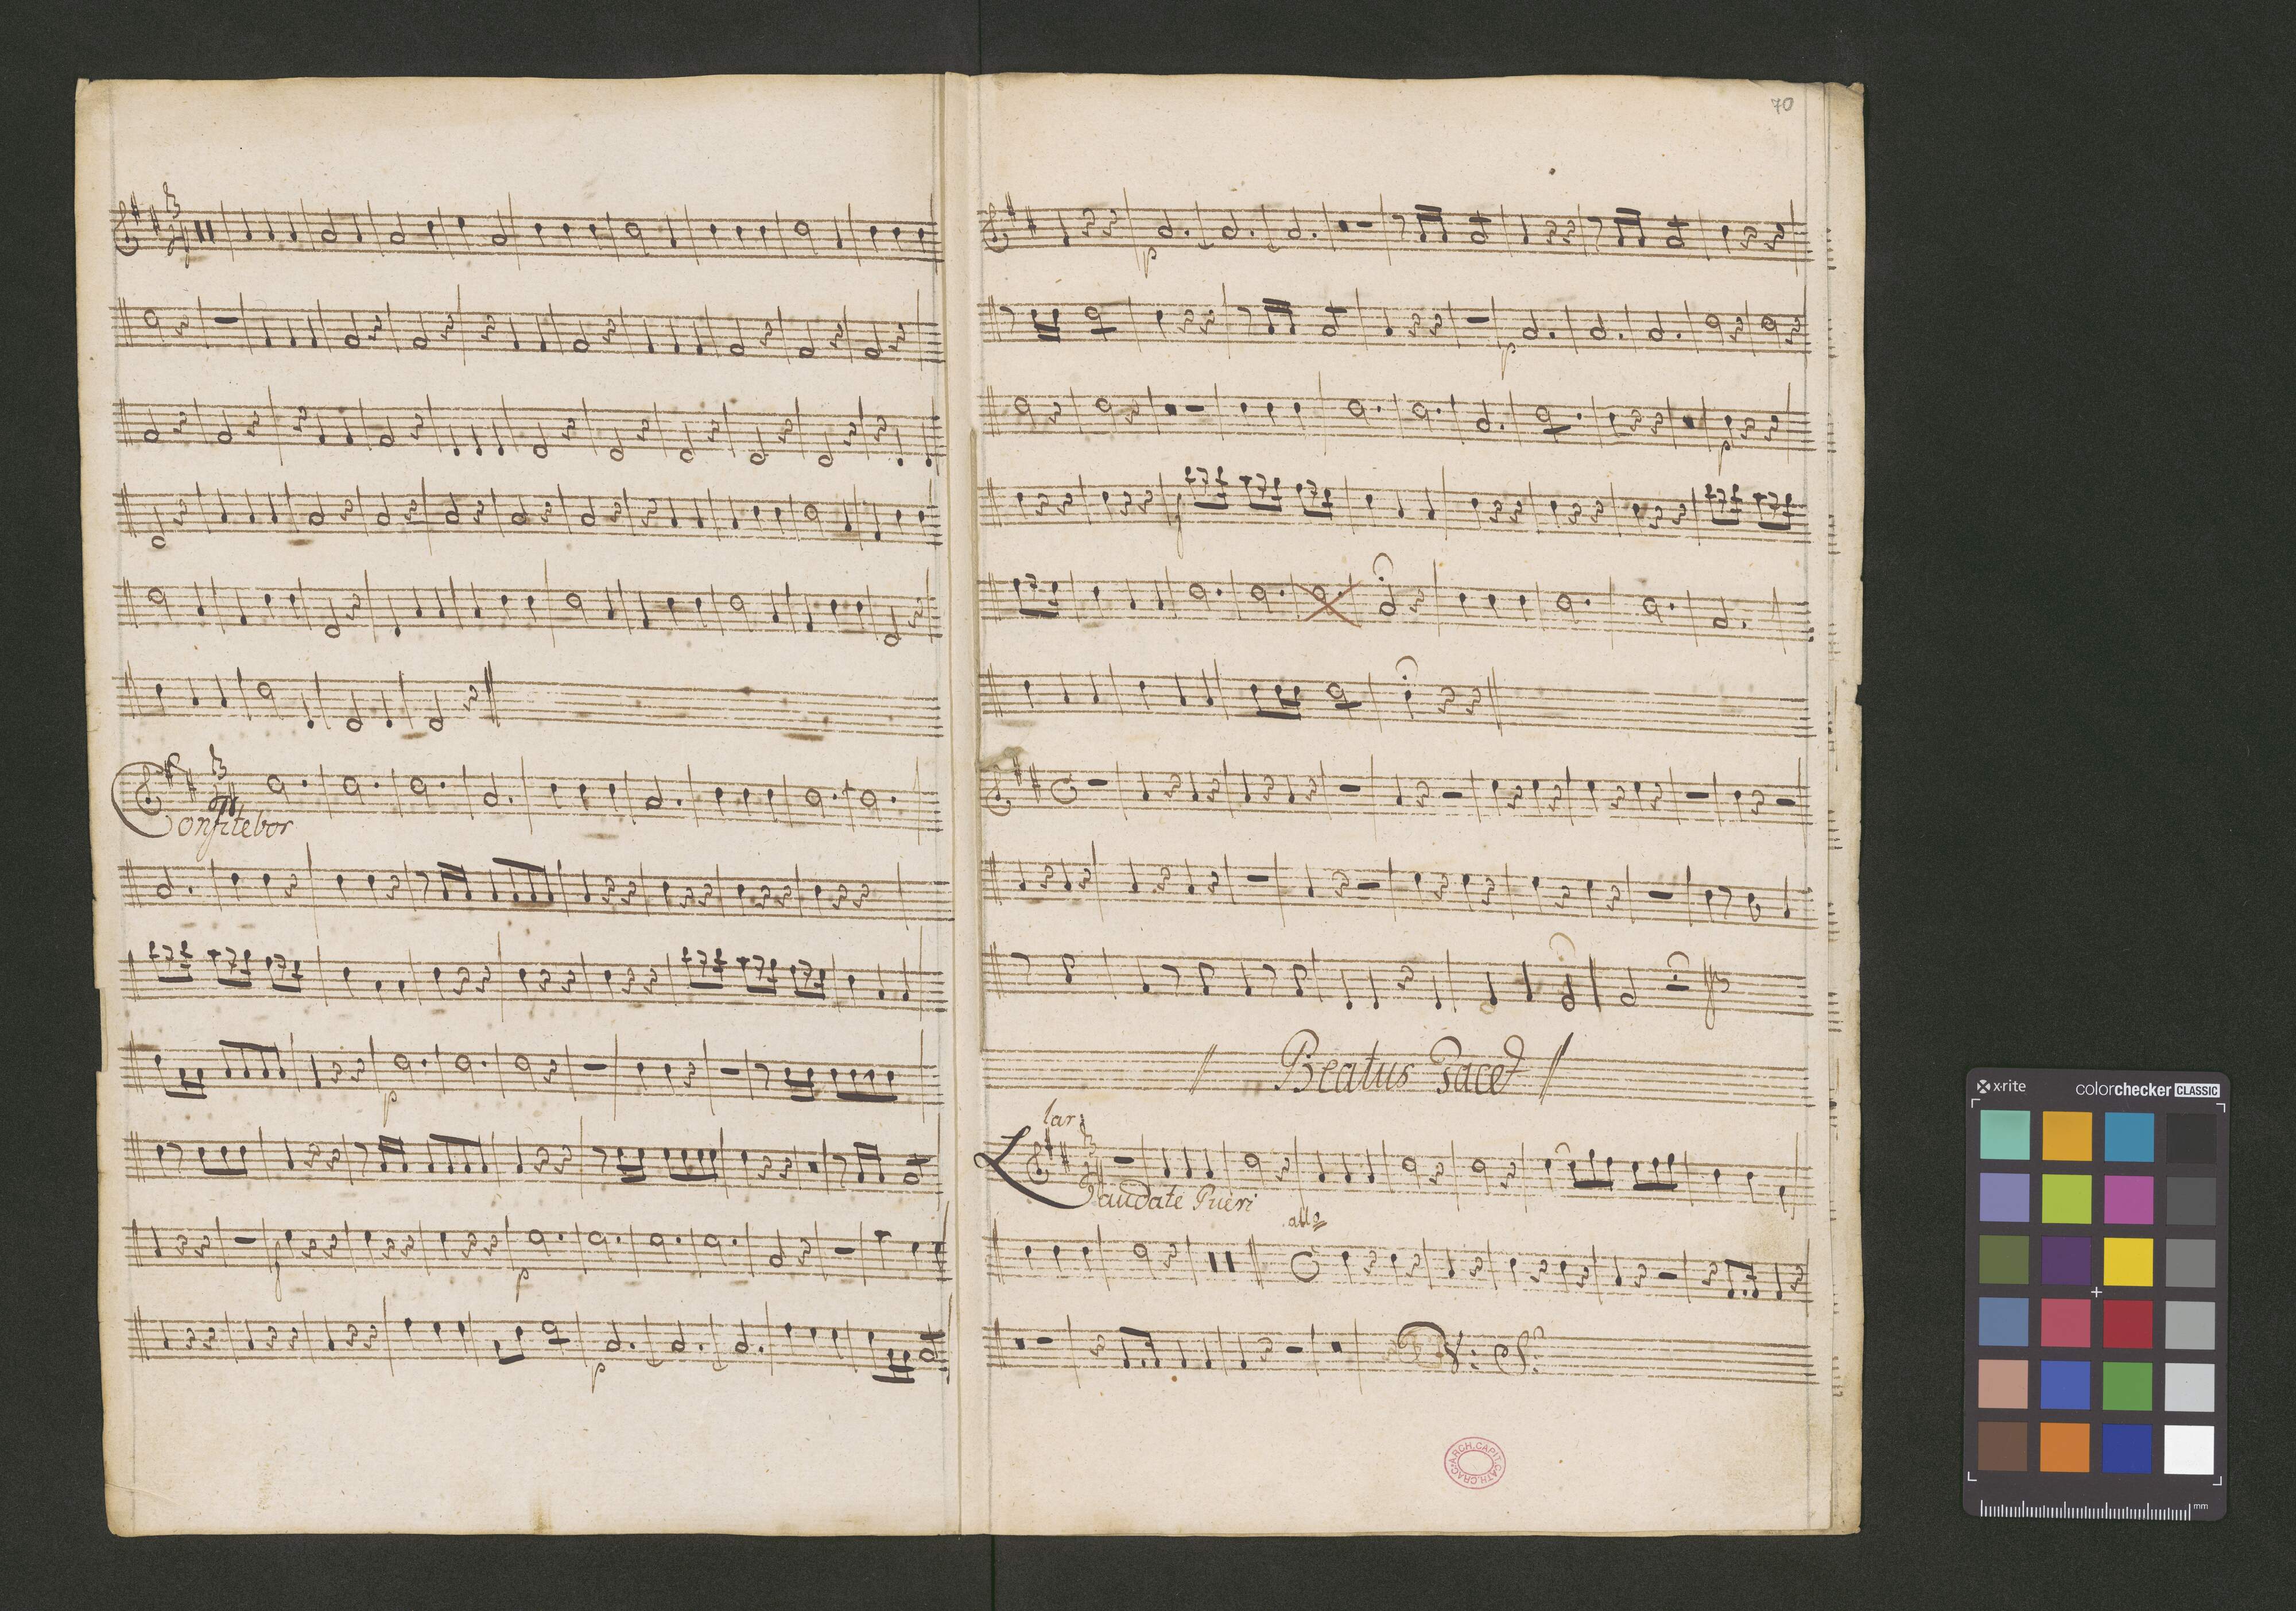 Confitebor
p
f
p
p
70
p
p
p
f
Beatus Tacet
lar:
Laudate Pueri
allo
V: S:
ARCH. CAPIT. CATH. CRAC.
x-rite colorchecker CLASSIC
mm